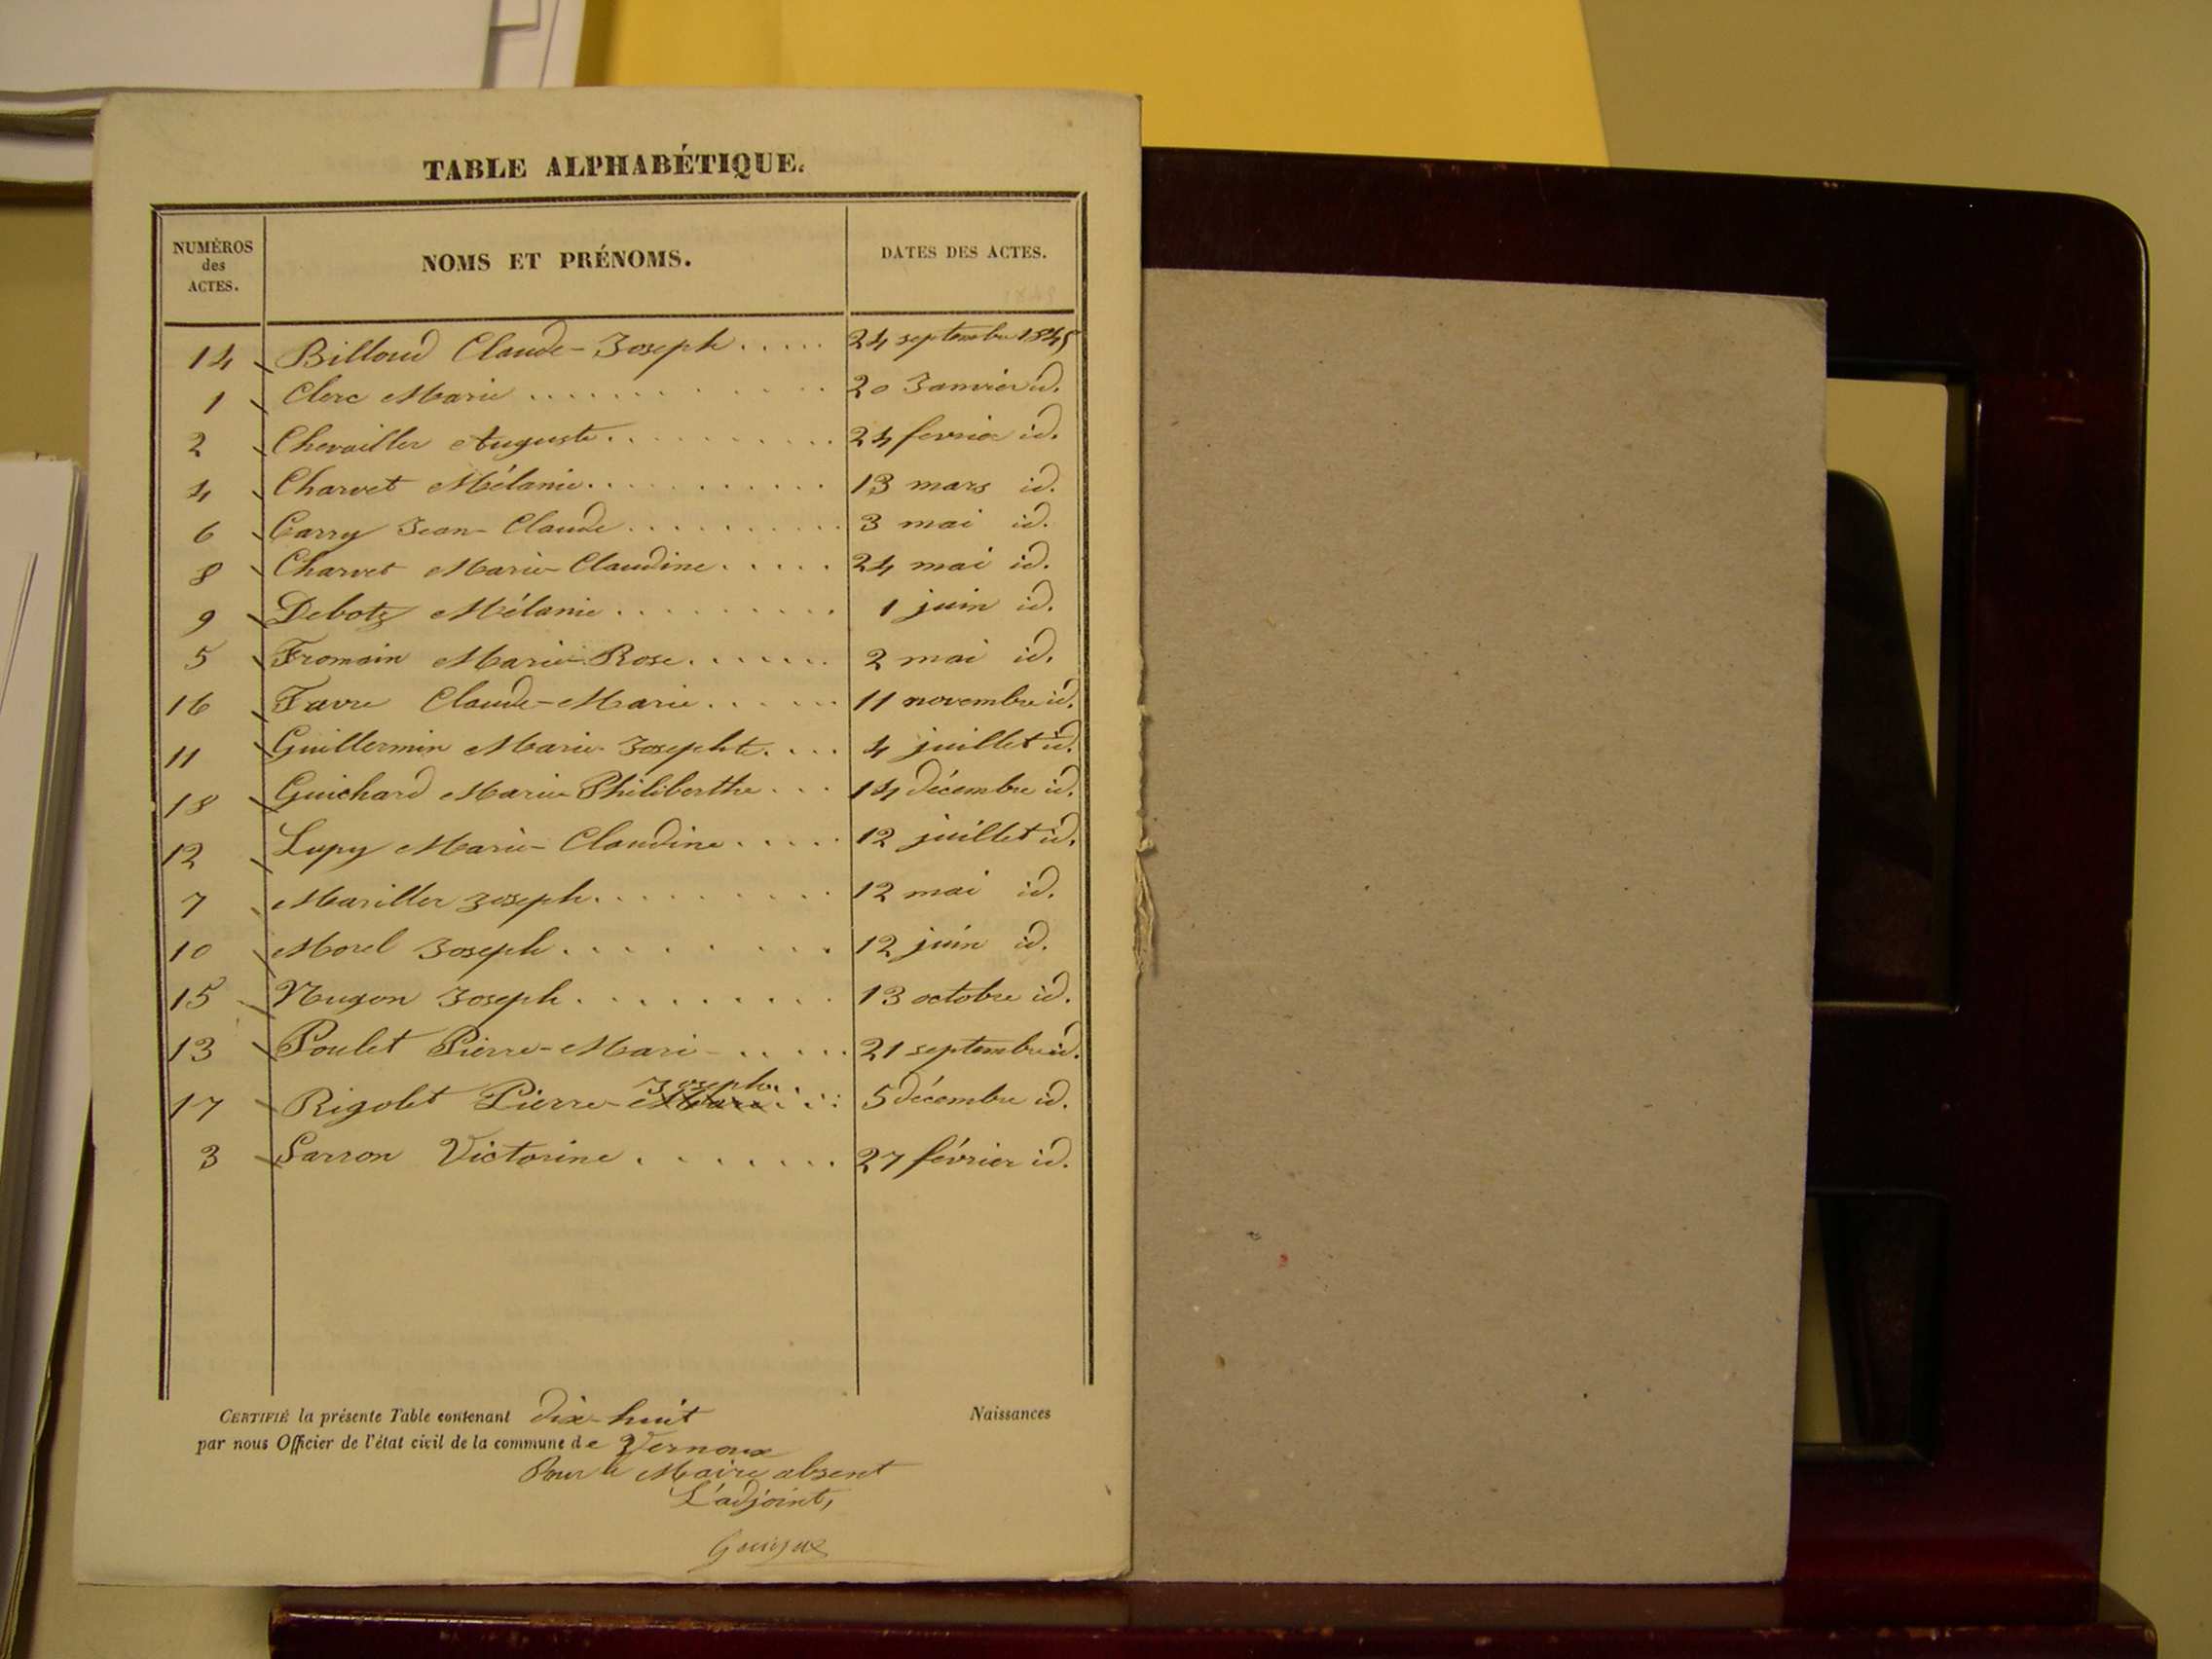 TABLE ALPHABÉTIQUE.
NUMÉROS des ACTES. NOMS ET PRÉNOMS. DATES DES ACTES.
14 Billoud Claude-Joseph..... 24 septembre 1845
1 Clerc Marie .......... 20 Janvier id.
2 Chevailler Auguste.......... 24 fevrier id.
4 Charvet Mélanie........... 13 mars id.
6 Carry Jean-Claude.......... 3 mai id.
8 Charvet Marie-Claudine..... 24 mai id.
9 Debotz Mélanie ......... 1 juin id.
5 Fromain Marie-Rose....... 2 mai id.
16 Favre Claude-Marie...... 11 novembre id.
11 Guillermin Marie-Josephte.... 4 juillet id.
18 Guichard Marie Philiberthe... 14 décembre id.
12 Lupy Marie-Claudine..... 12 juillet id.
7 Mariller Joseph......... 12 mai id.
10 Morel Joseph......... 12 juin id.
15 Nugon Joseph......... 13 octobre id.
13 Poulet Pierre-Marie..... 21 septembre id.
17 Rigolet Pierre-Joseph.... 5 décembre id.
3 Sarron Victorine....... 27 février id.
CERTIFIÉ la présente Table contenant dix-huit Naissances
par nous Officier de l'état civil de la commune de Vernoux
Pour le Maire absent
L'adjoint,
Guigue